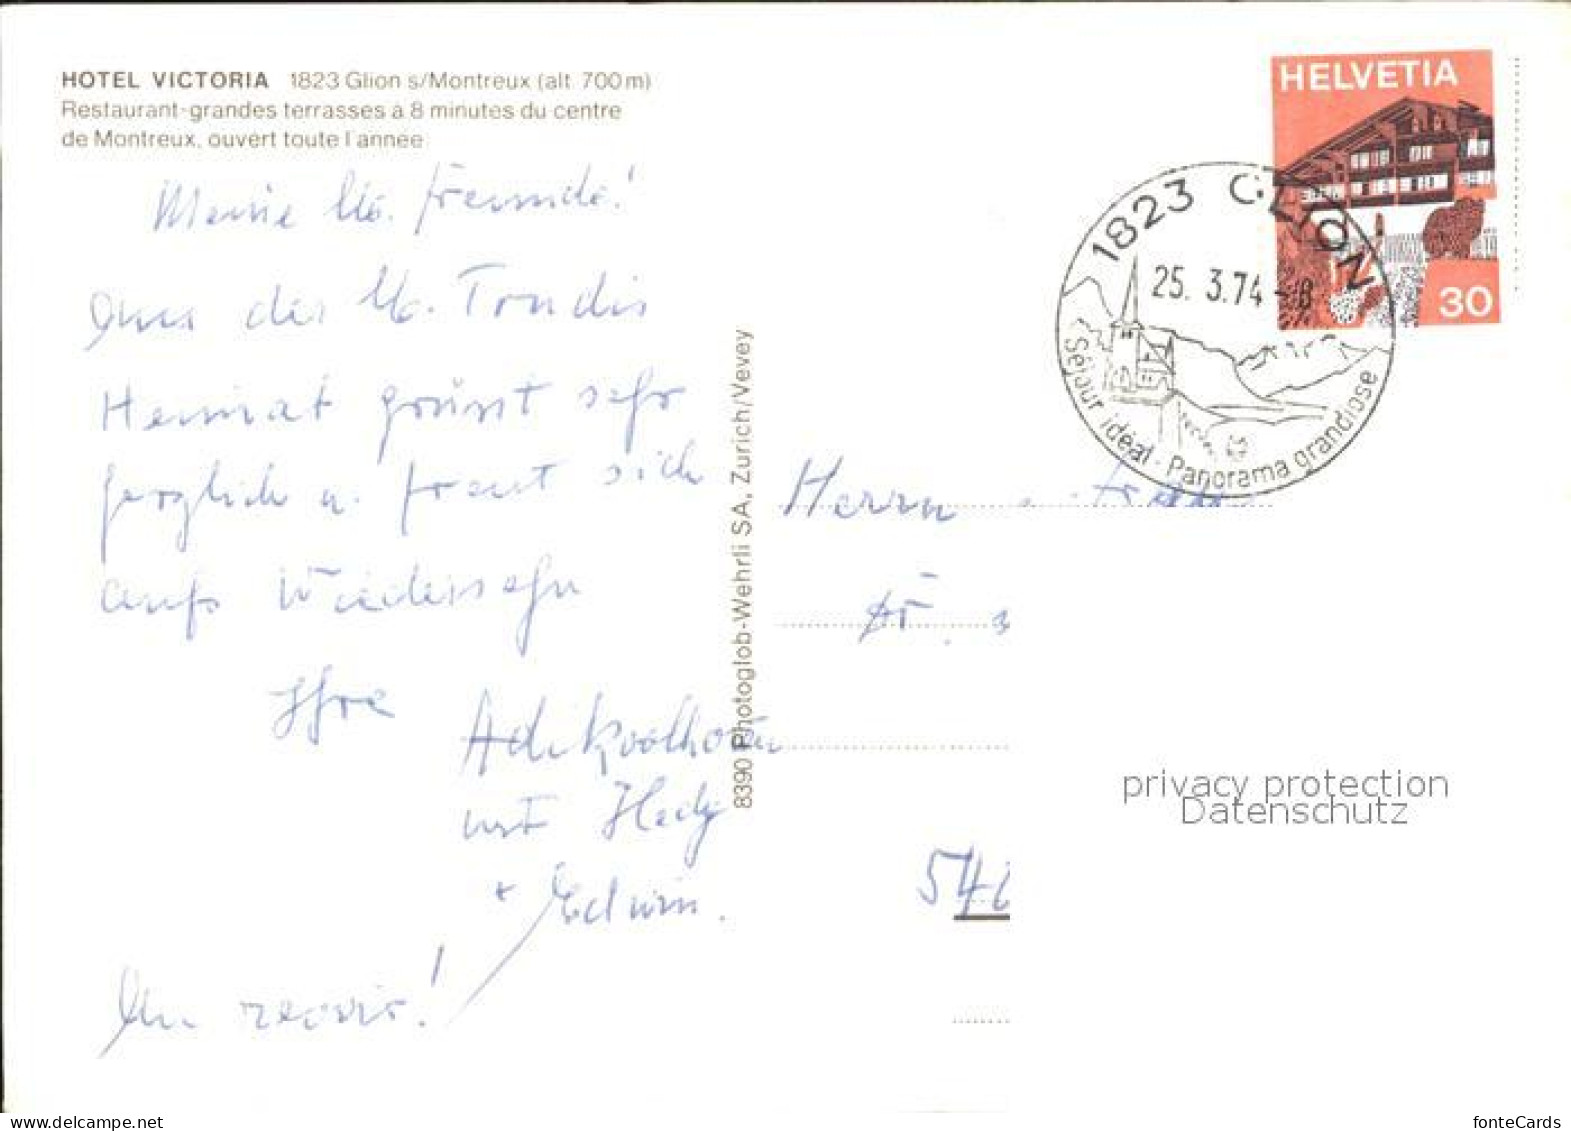 HOTEL VICTORIA 1823 Glion s/Montreux (alt. 700 m)
Restaurant-grandes terrasses à 8 minutes du centre
de Montreux, ouvert toute l'année
Meine lb. Freunde!
Aus der lb. Trudis
Heimat grüsst sehr
herzlich u. freut sich
aufs Wiedersehn
Ihre
und Hedy
+ Edwin.
Au revoir!
8390 Photoglob-Wehrli SA, Zürich/Vevey
HELVETIA
30
1823 GLION
25. 3.74 - 8
Séjour idéal · Panorama grandiose
Herrn
Dr.
privacy protection
Datenschutz
delcampe.net
fonteCards